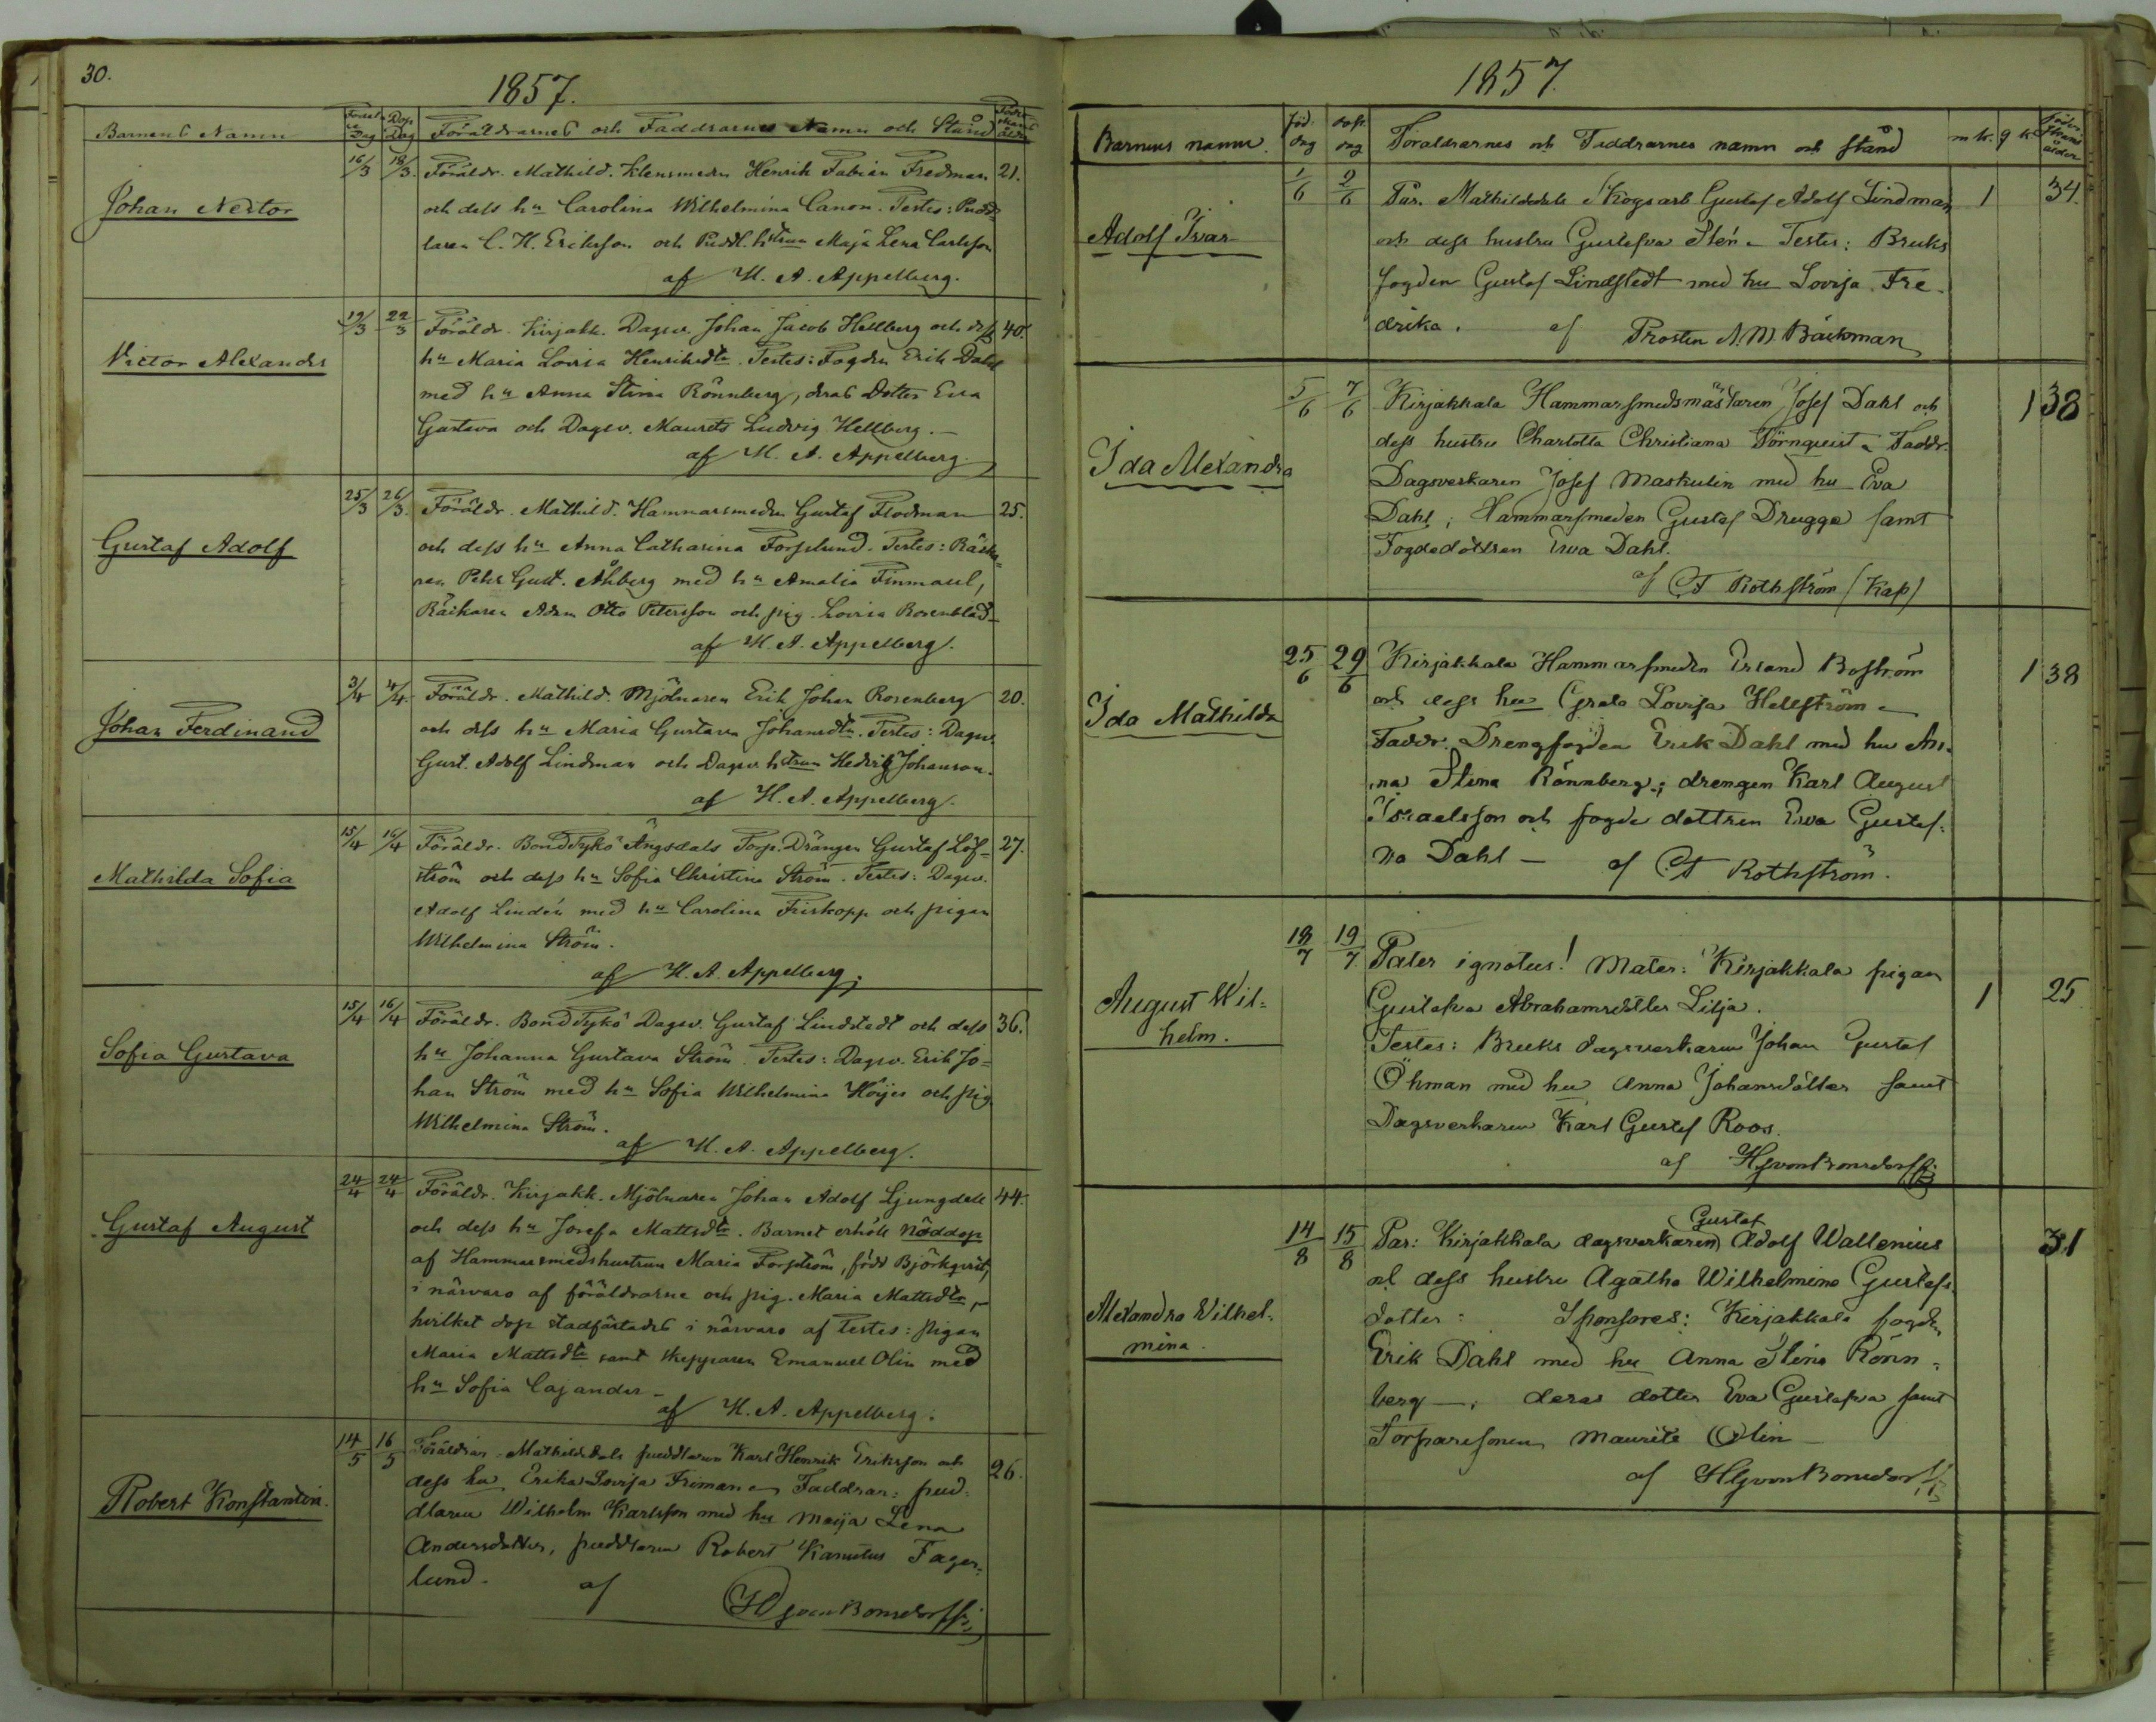 30.
1857.
Barnens Namn
Födelse Dag
Dop Dag
Föräldrarnes och Faddrarnes Namn och Stånd
ålder
Johan Nestor
16/3 18/3. Föräldr. Mathild. Klensmeden Henrik Fabian Fredman 21.
och dess hu Carolina Wilhelmina Canon. Testes: Pudd-
laren C. H. Eriksson och Puddl. hstrun Maja Lena Carlsson
af H. A. Appelberg.
Victor Alexander
19/3 22/3 Föräldr. Kirjakk. Dagsv. Johan Jacob Hellberg och dess 40.
hu Maria Lovisa Henriksdtr. Testes: Fogden Erik Dahl
med hu Anna Stina Rönnberg, deras Dotter Eva
Gustava och Dagsv. Maurits Ludvig Hellberg.—
af H. A. Appelberg.
Gustaf Adolf
25/3 26/3. Föräldr. Mathild. Hammarsmeden Gustaf Flodman 25.
och dess hu Anna Catharina Forsslund. Testes: Räcka-
ren Pehr Gust. Åhberg med hu Amalia Finmaul,
Räckaren Adam Otto Petersson och pig. Lovisa Rosenblad—
af H. A. Appelberg.
Johan Ferdinand
3/4 4/4. Föräldr. Mathild. Mjölnaren Erik Johan Rosenberg 20.
och dess hu Maria Gustava Johansdtr. Testes: Dagsv.
Gust. Adolf Lindman och Dagsv. hstrun Hedvig Johanson.
af H. A. Appelberg.
Mathilda Sofia
15/4 16/4 Föräldr. BondTykö Ängsdals Torp. Drängen Gustaf Löf- 27.
ström och dess hu Sofia Christina Ström. Testes: Dagsv.
Adolf Lindén med hu Carolina Friskopp och pigan
Wilhelmina Ström.
af H. A. Appelberg.
Sofia Gustava
15/4 16/4 Föräldr. BondTykö Dagsv. Gustaf Lindstedt och dess 36.
hu Johanna Gustava Ström. Testes: Dagsv. Erik Jo-
han Ström med hu Sofia Wilhelmina Höijer och pig.
Wilhelmina Ström.
af H. A. Appelberg.
Gustaf August
24/4 24/4 Föräldr. Kirjakk. Mjölnaren Johan Adolf Ljungdell 44.
och dess hu Josefa Mattsdtr. Barnet erhöll Nöddop
af Hammarsmedshustrun Maria Forström, född Björkqvist,
i närvaro af föräldrarne och pig. Maria Mattsdtr,
hvilket dop stadfästades i närvaro af Testes: pigan
Maria Mattsdtr samt skepparen Emanuel Olin med
hu Sofia Cajander—
af H. A. Appelberg.
Robert Konstantin.
14/5 16/5 Föräldrar. Mathildedals puddlaren Karl Henrik Eriksson och 26.
dess hu Erika Lovisa Friman— Faddrar: pud-
dlaren Wilhelm Karlsson med hu Maija Lena
Andersdotter, puddlaren Robert Kanutus Fager-
lund. af
HGvonBonsdorff
1857.
Barnens namn.
föd. dag
dop. dag
Föräldrarnes och Faddrarnes namn och stånd
m k.
q k.
ålder
Adolf Ivar
1/6 2/6 Par. Mathildedals Skogsarb Gustaf Adolf Lindman 1 34.
och dess hustru Gustafva Stén— Testes: Bruks
fogden Gustaf Lindstedt med hu Lovisa Fre-
drika. af Prosten N. M. Bäckman
Ida Alexandra
5/6 7/6 Kirjakkala Hammarsmedsmästaren Josef Dahl och 1 38
dess hustru Charlotta Christiana Törnqvist— Faddr.
Dagsverkaren Josef Maskulin med hu Eva
Dahl; Hammarsmeden Gustaf Drugge samt
Fogdedottren Eva Dahl.
af CA Rothström (Kap)
Ida Mathilda
25/6 29/6 Kirjakkala Hammarsmeden Erland Boström 1 38
och dess hu Greta Lovisa Hellström—
Faddr. Drengfogden Erik Dahl med hu An-
na Stina Rönnberg; drengen Karl August
Israelsson och fogde dottren Eva Gustaf-
va Dahl — af CA Rothström.
August Wil-
helm.
18/7 19/7. Pater ignotus! Mater: Kirjakkala pigan
Gustafva Abrahamsdotter Lilja. 1 25
Testes: Bruks dagsverkaren Johan Gustaf
Öhman med hu Anna Johansdotter samt
Dagsverkaren Karl Gustaf Roos.
af HGvonBonsdorff
Alexandra Wilhel-
mina.
Gustaf
14/8 15/8 Par: Kirjakkala dagsverkaren Adolf Wallenius 31
och dess hustru Agatha Wilhelmina Gustafs-
dotter: Sponsores: Kirjakkala fogden
Erik Dahl med hu Anna Stina Rönn-
berg —; deras dotter Eva Gustafva samt
Torparesonen Maurits Olin—
af HGvonBonsdorff